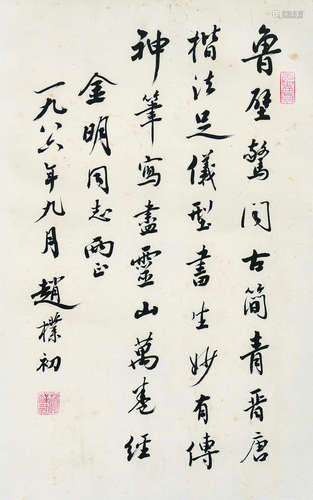 鲁壁驚闻古簡青晋唐
楷法足儀型書生妙有傳
神筆寫盡靈山萬卷經
金明同志兩正
一九八六年九月趙樸初